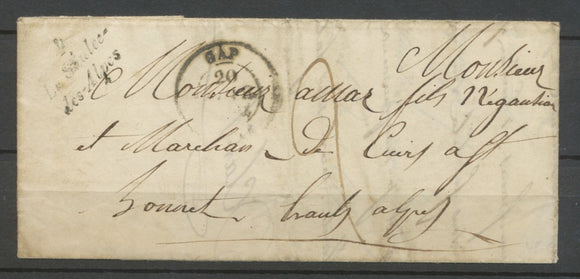 La Saulce-
des-Alpes
GAP
20
Monsieur
Monsieur amar fils Négautian
et Marchan de Cuirs a St
bonnet hautes alpes
2